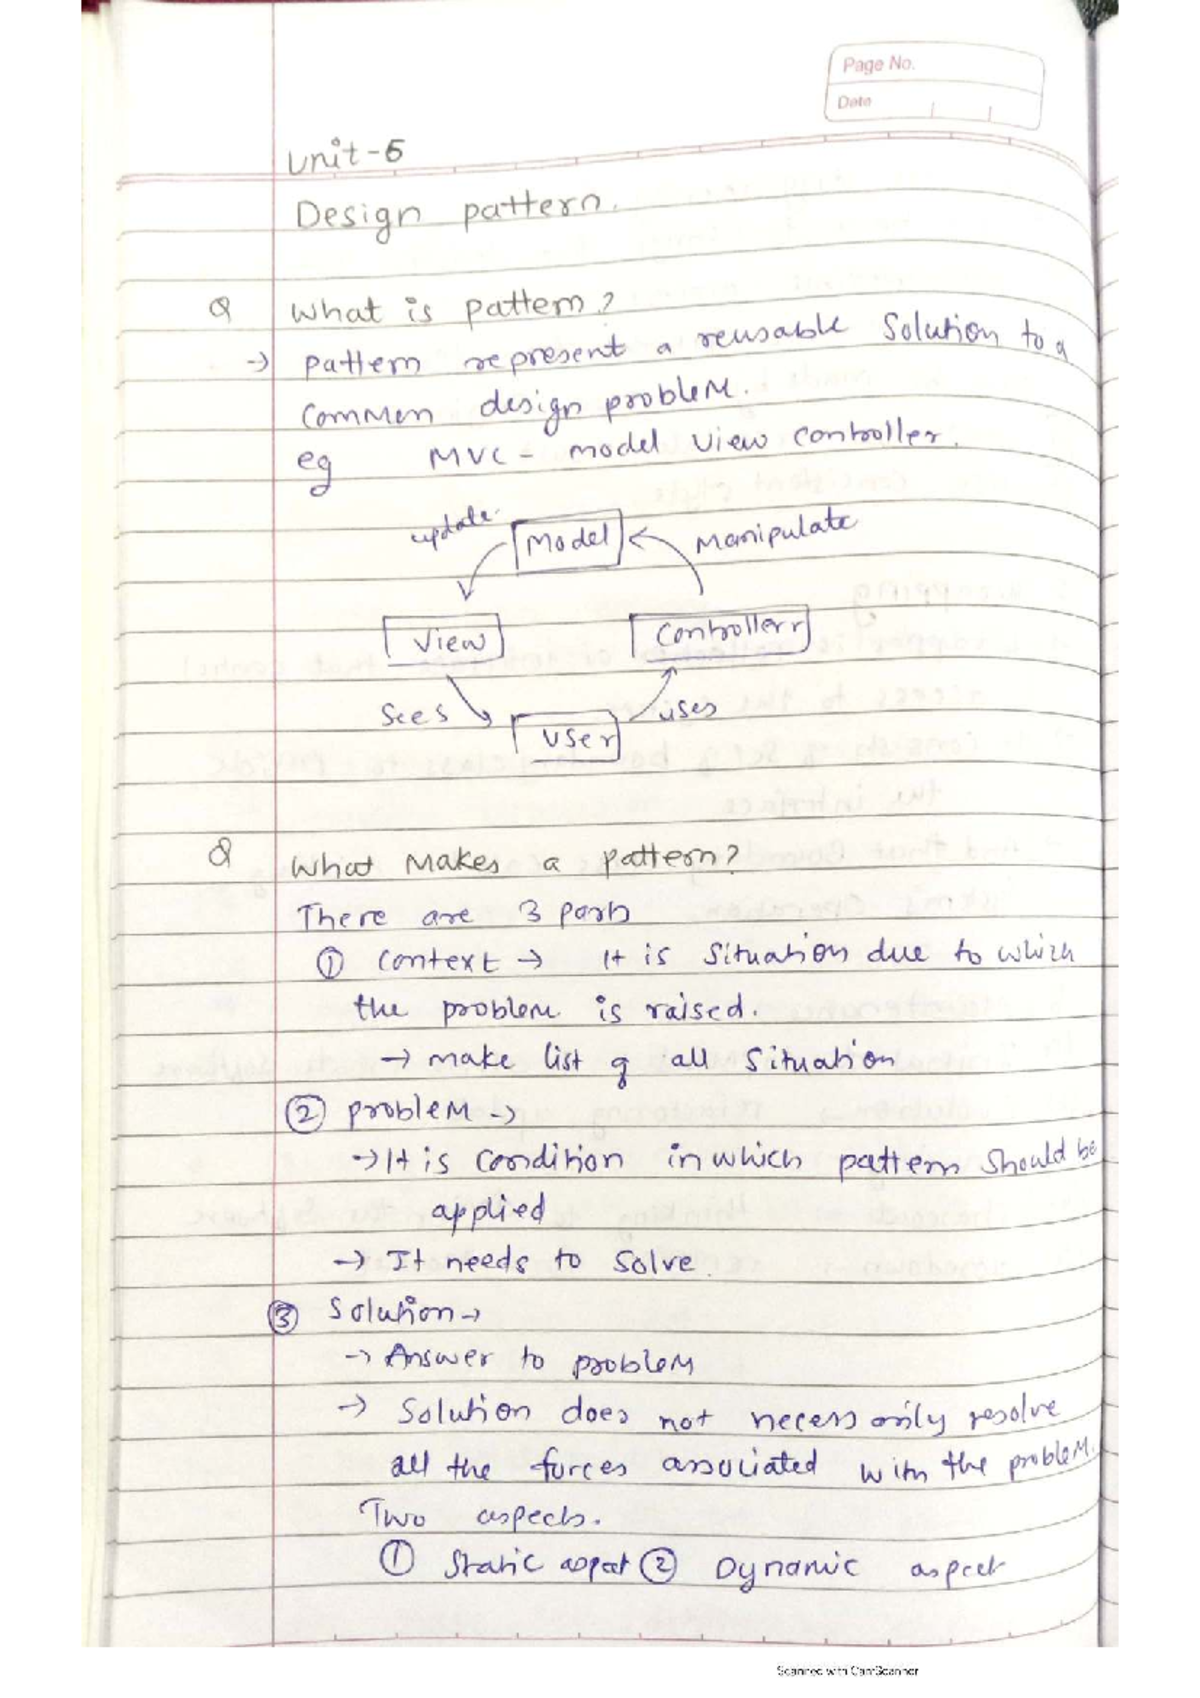 Page No.
Date
Unit-5
Design pattern.
Q What is pattern?
→ pattern represent a reusable solution to a
common design problem.
eg MVC - model view controller.
update.
Model
Manipulate
View
Controllerr
sees
uses
User
Q What Makes a pattern?
There are 3 parts
① context → It is situation due to which
the problem is raised.
→ make list of all situation
② problem →
→ It is condition in which pattern should be
applied
→ It needs to solve.
③ solution →
→ Answer to problem
→ solution does not necessarily resolve
all the forces associated with the problem.
Two aspects.
① static aspect ② Dynamic aspect
Scanned with CamScanner